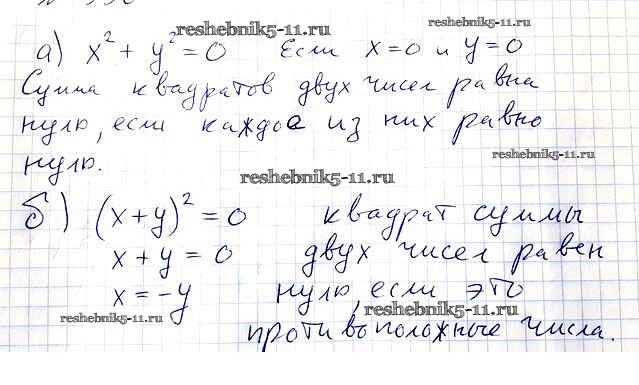 reshebnik5-11.ru
reshebnik5-11.ru
а) x² + y² = 0 Если x = 0 и y = 0
Сумма квадратов двух чисел равна
нулю, если каждое из них равно
нулю.
reshebnik5-11.ru
reshebnik5-11.ru
б) (x+y)² = 0 квадрат суммы
x + y = 0 двух чисел равен
x = -y нулю, если это
reshebnik5-11.ru
reshebnik5-11.ru
противоположные числа.